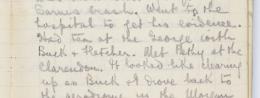 crash. Went to the
hospital to get his evidence.
Had tea at the George with
Buck & Fletcher. Met Pethy at the
Clarendon. It looked like clearing
up so Buck & I drove back to
the aerodrome in the